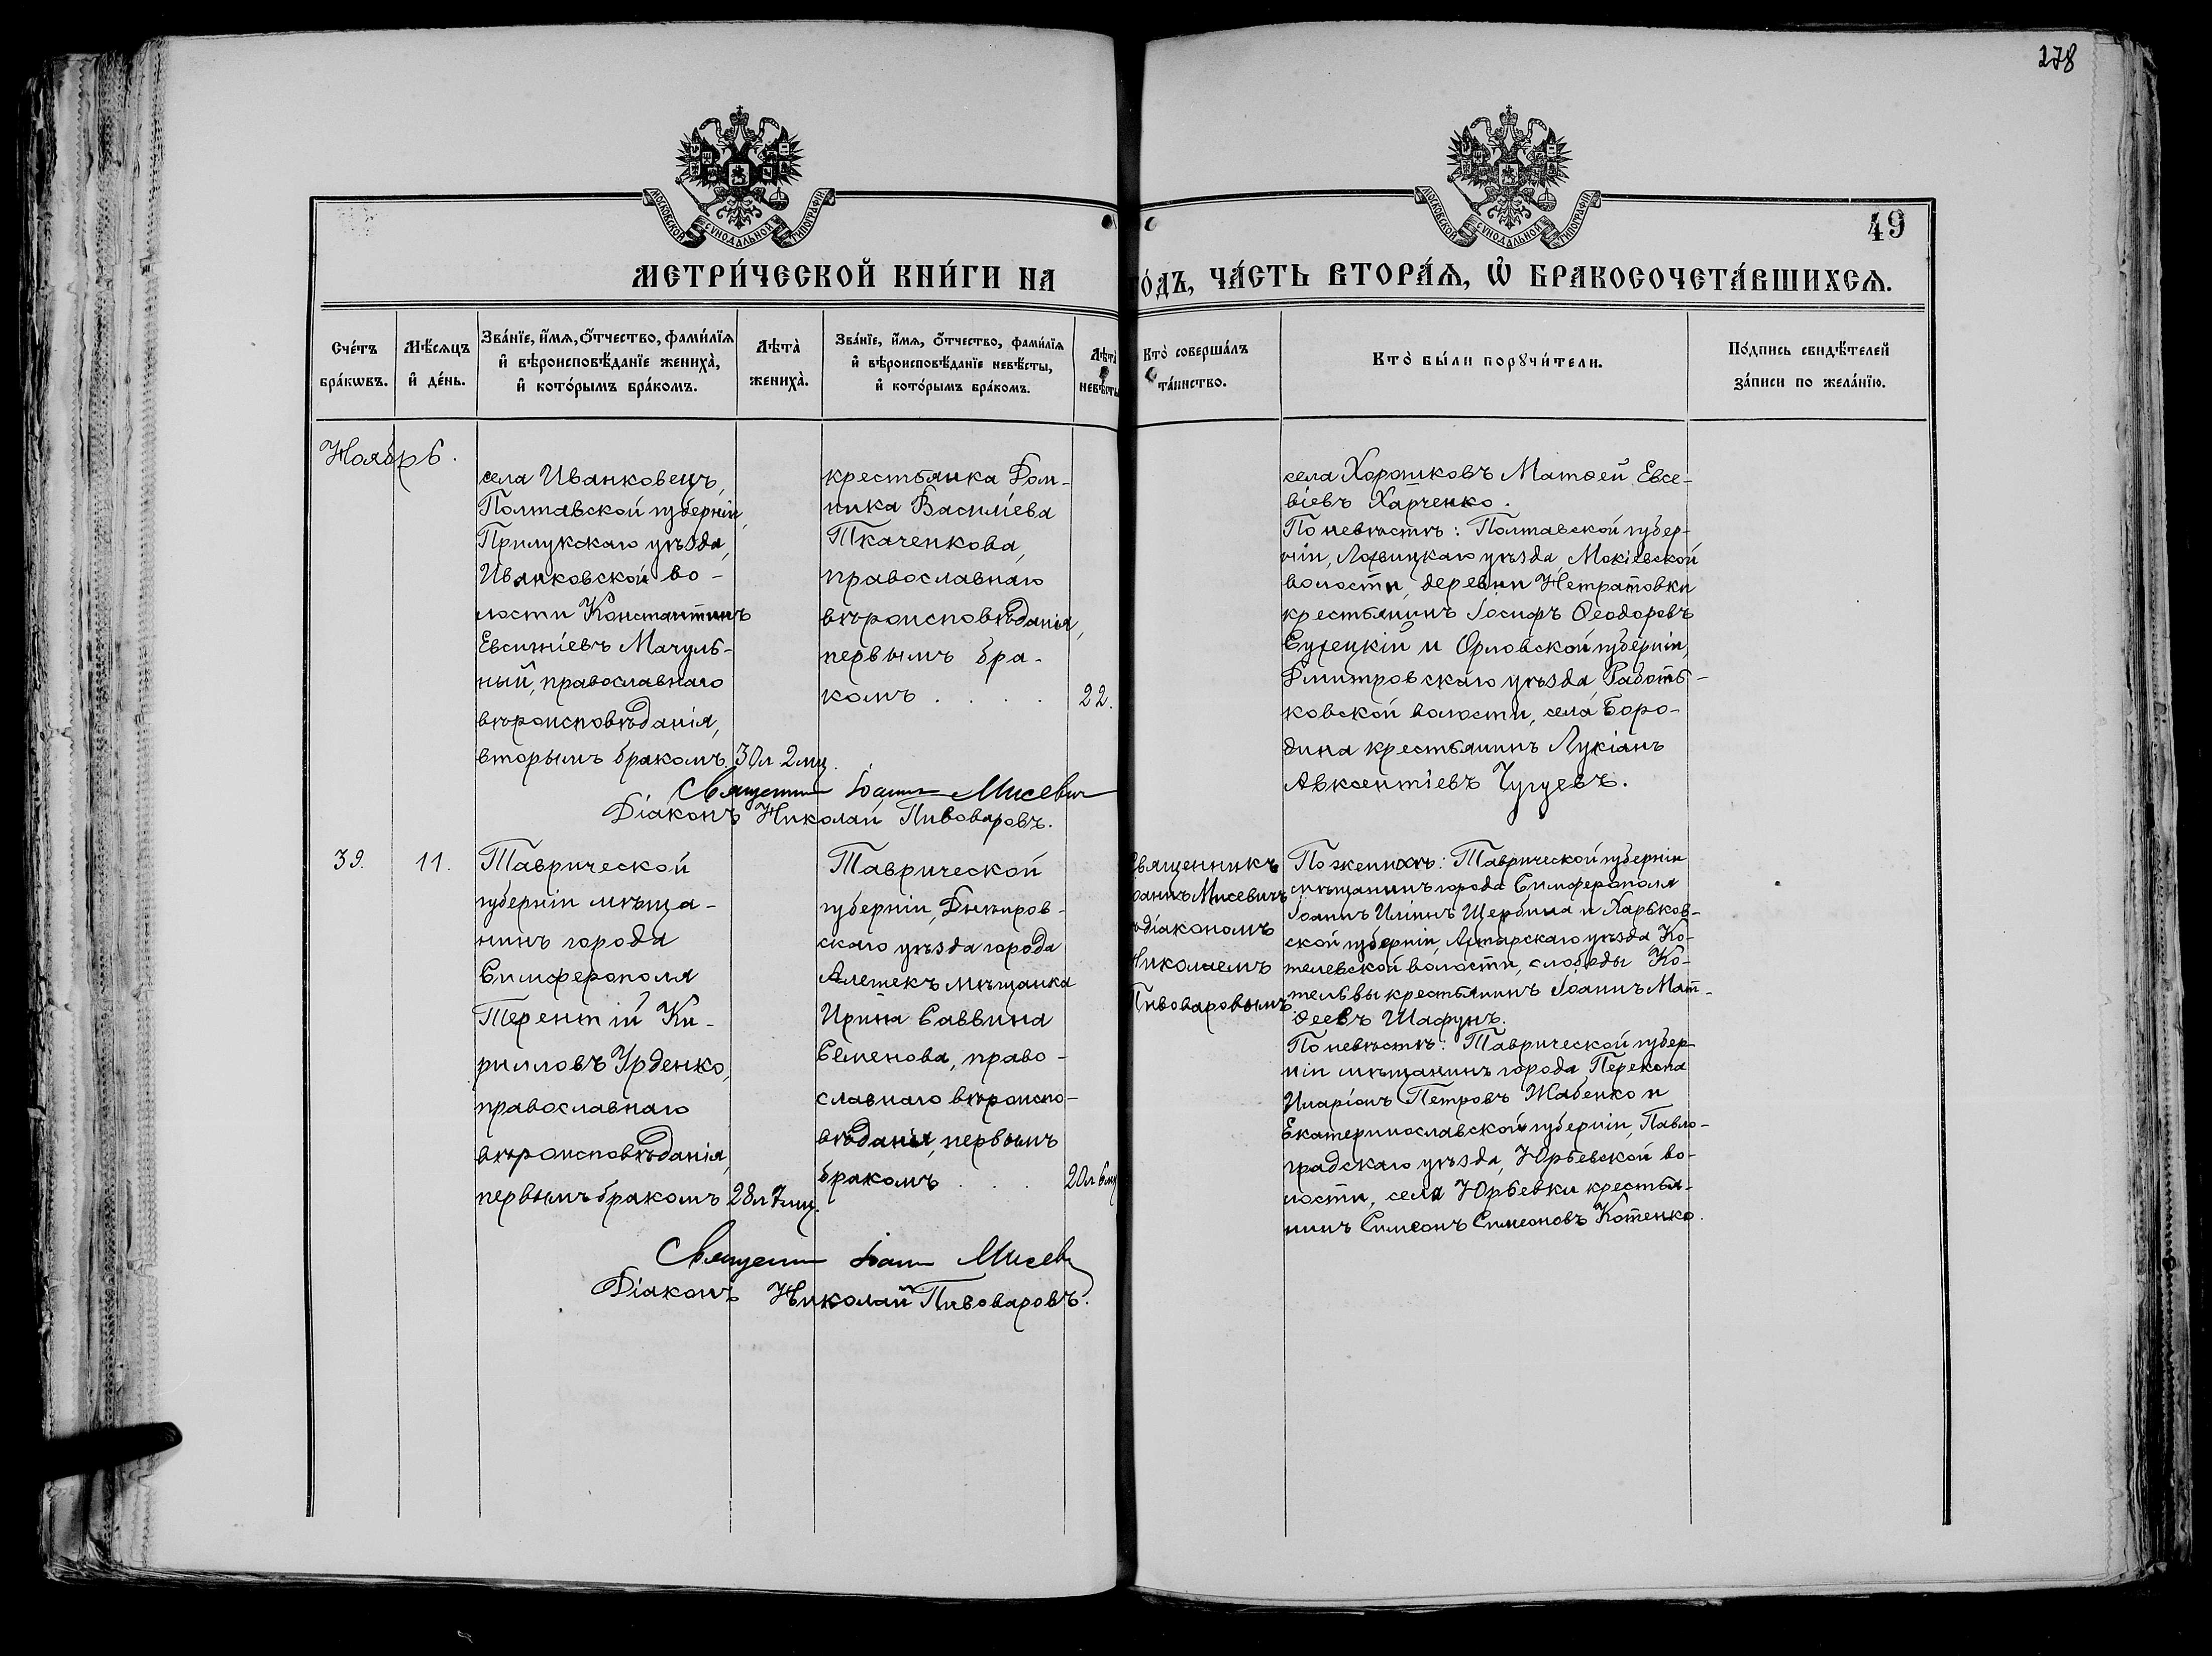 278
МОСКОВСКОЙ СѴНОДАЛЬНОЙ ТИПОГРАФІИ
МОСКОВСКОЙ СѴНОДАЛЬНОЙ ТИПОГРАФІИ
49
МЕТРИ́ЧЕСКОЙ КНИ́ГИ НА
О́ДЪ, ЧА́СТЬ ВТОРА́Ѧ, Ѽ БРАКОСОЧЕТА́ВШИХСѦ.
Сче́тъ
бра́кѡвъ.
Мѣ́сѧцъ
и҆ де́нь.
Зва́нїе, и҆́мѧ, ѻ҆́тчество, фами́лїѧ
и҆ вѣроисповѣ́данїе жениха̀,
и҆ кото́рымъ бра́комъ.
Лѣта̀
жениха̀.
Зва́нїе, и҆́мѧ, ѻ҆́тчество, фами́лїѧ
и҆ вѣроисповѣ́данїе невѣ́сты,
и҆ кото́рымъ бра́комъ.
Лѣта̀
невѣ́сты
Кто̀ соверша́лъ
та́инство.
Кто̀ бы́ли порꙋчи́тели.
По́дпись свидѣ́телей
за́писи по жела́нїю.
Ноябрь.
села Иванковецъ,
Полтавской губерніи,
Прилукскаго уѣзда,
Иванковской во-
лости Константинъ
Евсигніевъ Мачуль-
ный, православнаго
вѣроисповѣданія,
вторымъ бракомъ.
30 л 2 мц.
крестьянка Дом-
ника Василіева
Ткаченкова,
православнаго
вѣроисповѣданія,
первымъ бра-
комъ . . . .
22.
села Хорошковъ Матѳей Евсе-
віевъ Харченко.
По невѣстѣ: Полтавской губер-
ніи, Лохвицкаго уѣзда, Мокіевской
волости, деревни Нетратовки
крестьянинъ Іосифъ Ѳеодоровъ
Сухецкій и Орловской губерніи,
Дмитровскаго уѣзда, Работь-
ковской волости, села Боро-
дина крестьянинъ Лукіанъ
Авксентіевъ Чугуевъ.
Священникъ Іоаннъ Мисевичъ
Діаконъ Николай Пивоваровъ.
39.
11.
Таврической
губерніи мѣща-
нинъ города
Симферополя
Терентій Ки-
рилловъ Урденко,
православнаго
вѣроисповѣданія,
первымъ бракомъ
28 л 7 мц.
Таврической
губерніи, Днѣпров-
скаго уѣзда города
Алешекъ мѣщанка
Ирина Саввина
Семенова, право-
славнаго вѣроиспо-
вѣданія, первымъ
бракомъ . . .
20 л 6 мц
Священникъ
Іоаннъ Мисевичъ
съ діакономъ
Николаемъ
Пивоваровымъ.
По женихѣ: Таврической губерніи
мѣщанинъ города Симферополя
Іоаннъ Иліинъ Щербина и Харьков-
ской губерніи, Ахтырскаго уѣзда, Ко-
телевской волости, слободы Ко-
тельвы крестьянинъ Іоаннъ Мат-
ѳеевъ Шафунъ.
По невѣстѣ: Таврической губер-
ніи мѣщанинъ города Перекопа
Иларіонъ Петровъ Жабенко и
Екатеринославской губерніи, Павло-
градскаго уѣзда, Юрьевской во-
лости, села Юрьевки крестья-
нинъ Симеонъ Симеоновъ Котенко.
Священникъ Іоаннъ Мисевичъ
Діаконъ Николай Пивоваровъ.